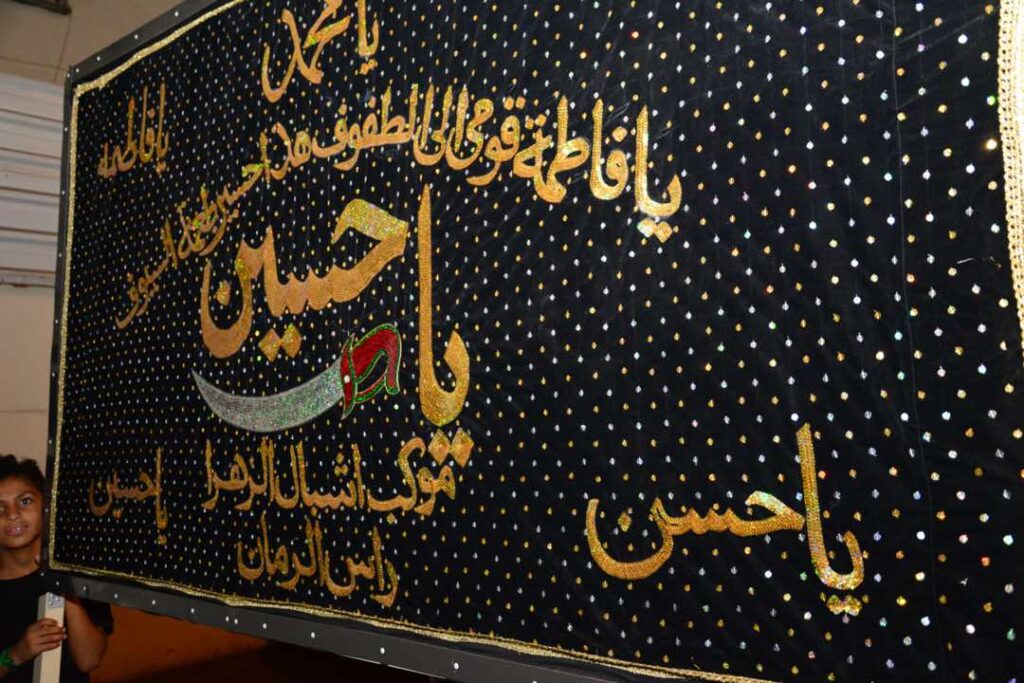 يا محمد
يا فاطمة
يا فاطمة قومي الى الطفوف هذا حسين طعمة السيوف
يا حسين
موكب اشبال الزهرا
راس الرمان
يا حسين
يا حسن